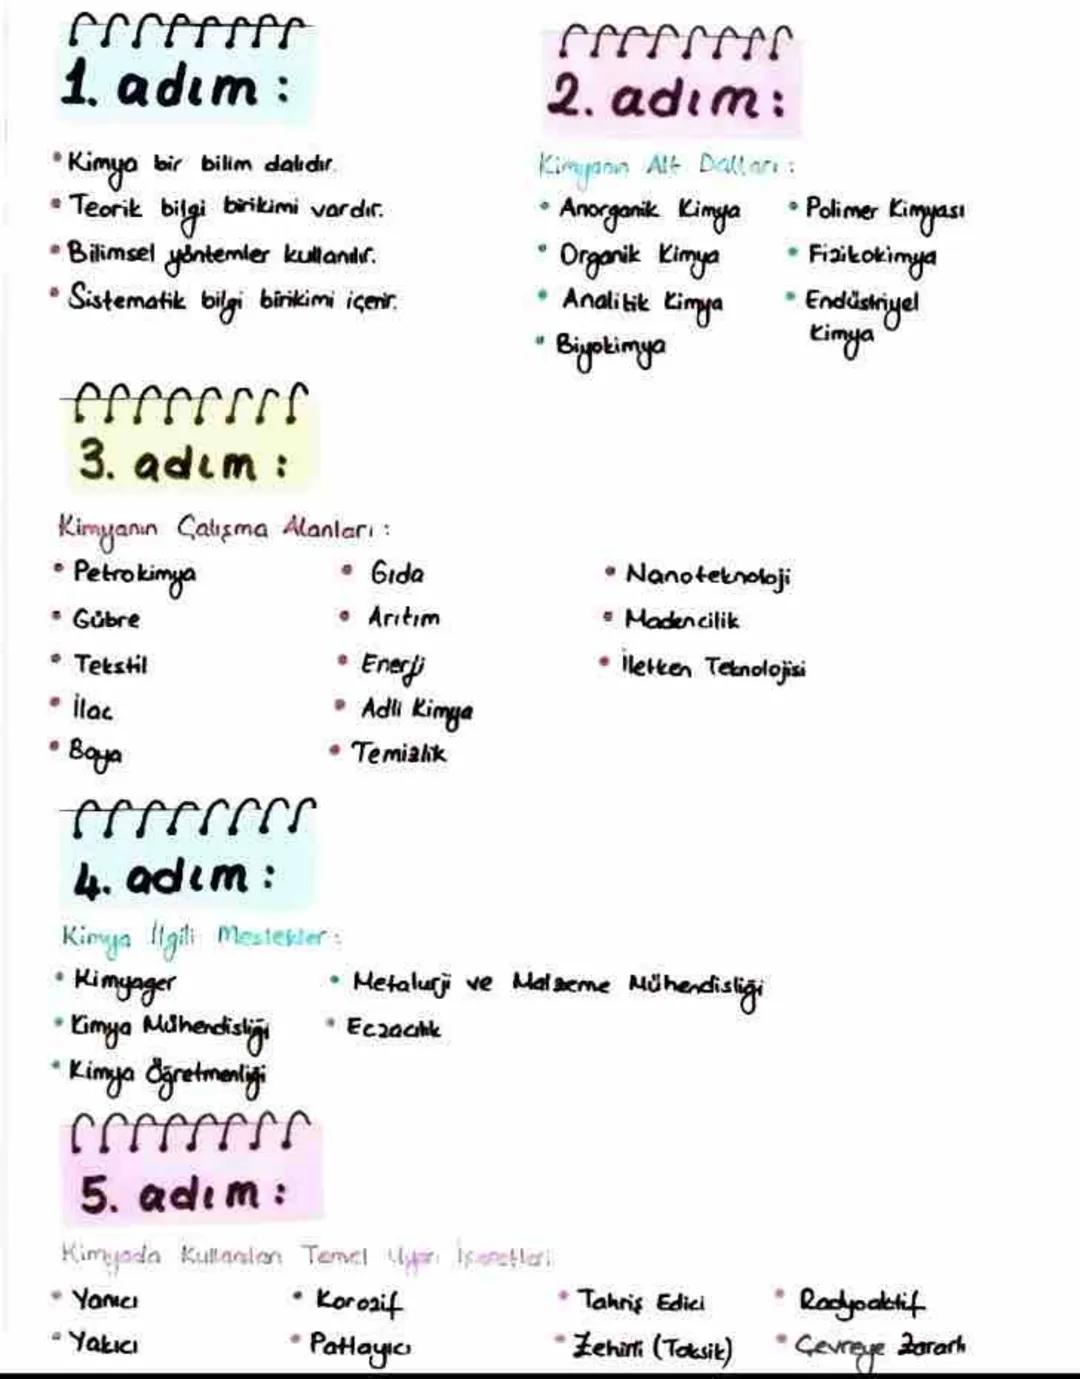 1. adım :
• Kimya bir bilim dalıdır.
• Teorik bilgi birikimi vardır.
• Bilimsel yöntemler kullanılır.
• Sistematik bilgi birikimi içerir.
2. adım :
Kimyanın Alt Dalları :
• Anorganik Kimya
• Organik Kimya
• Analitik Kimya
• Biyokimya
• Polimer Kimyası
• Fizikokimya
• Endüstriyel
Kimya
3. adım :
Kimyanın Çalışma Alanları :
• Petrokimya
• Gübre
• Tekstil
• İlac
• Boya
• Gıda
• Arıtım
• Enerji
• Adli Kimya
• Temizlik
• Nanoteknoloji
• Madencilik
• İletken Teknolojisi
4. adım :
Kimya İlgili Meslekler :
• Kimyager
• Kimya Mühendisliği
• Kimya Öğretmenliği
• Metalurji ve Malzeme Mühendisliği
• Eczacılık
5. adım :
Kimyada Kullanılan Temel Uyarı İşaretleri
• Yanıcı
• Yakıcı
• Korozif
• Patlayıcı
• Tahriş Edici
• Zehirli (Toksik)
• Radyoaktif
• Çevreye Zararlı